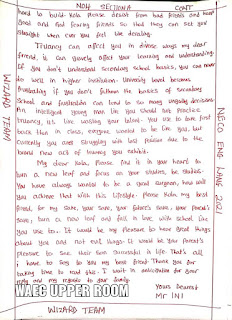 NOW SECTION A CONT
hard to build Kola please desist from bad friends and keep
good and God fearing friends so that they can set you
straight when ever you feel like derailing.
Truancy can affect you in diverse ways my dear
friend, it can gravely affect your learning and understanding.
If you don't understand Secondary school basics, you can never
do well in higher institution. University level becomes
frustrating if you don't the basics of secondary
School and frustration can lead to so many ungodly decisions
An intelligent young man like you should not practice
truancy, it's like wasting your talent. You use to take first
back then in class, everyone wanted to be like you, but
currently you are struggling with last position due to the
brand new act of truancy you exhibit.
My dear Kola, Please find it in your heart to
turn a new leaf and focus on your studies, be studious.
You have always wanted to be a good surgeon, how will
you achieve that with this lifestyle. please Kola my best
friend for my sake, your sake, your future's sake, your parent's
sake; turn a new leaf and fall in love with school like
you use to. It would be my pleasure to hear great things
about you and not evil things. It would be your parent's
pleasure to see their son successful in life. That's all
i have to say to you my best friend. Thank you for
taking time to read this. I wait in anticipation for your
reply and my regards to your family.
Yours Dearest
Mr INI
WAEC UPPER ROOM
WIZARD TEAM
WIZARD TEAM
NECO ENG LANG 202